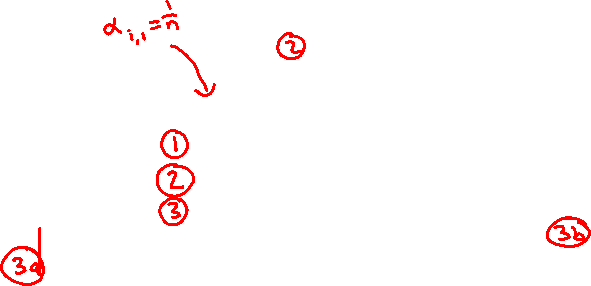 α_{i,1} = 1/n
②
①
②
③
3b
3a